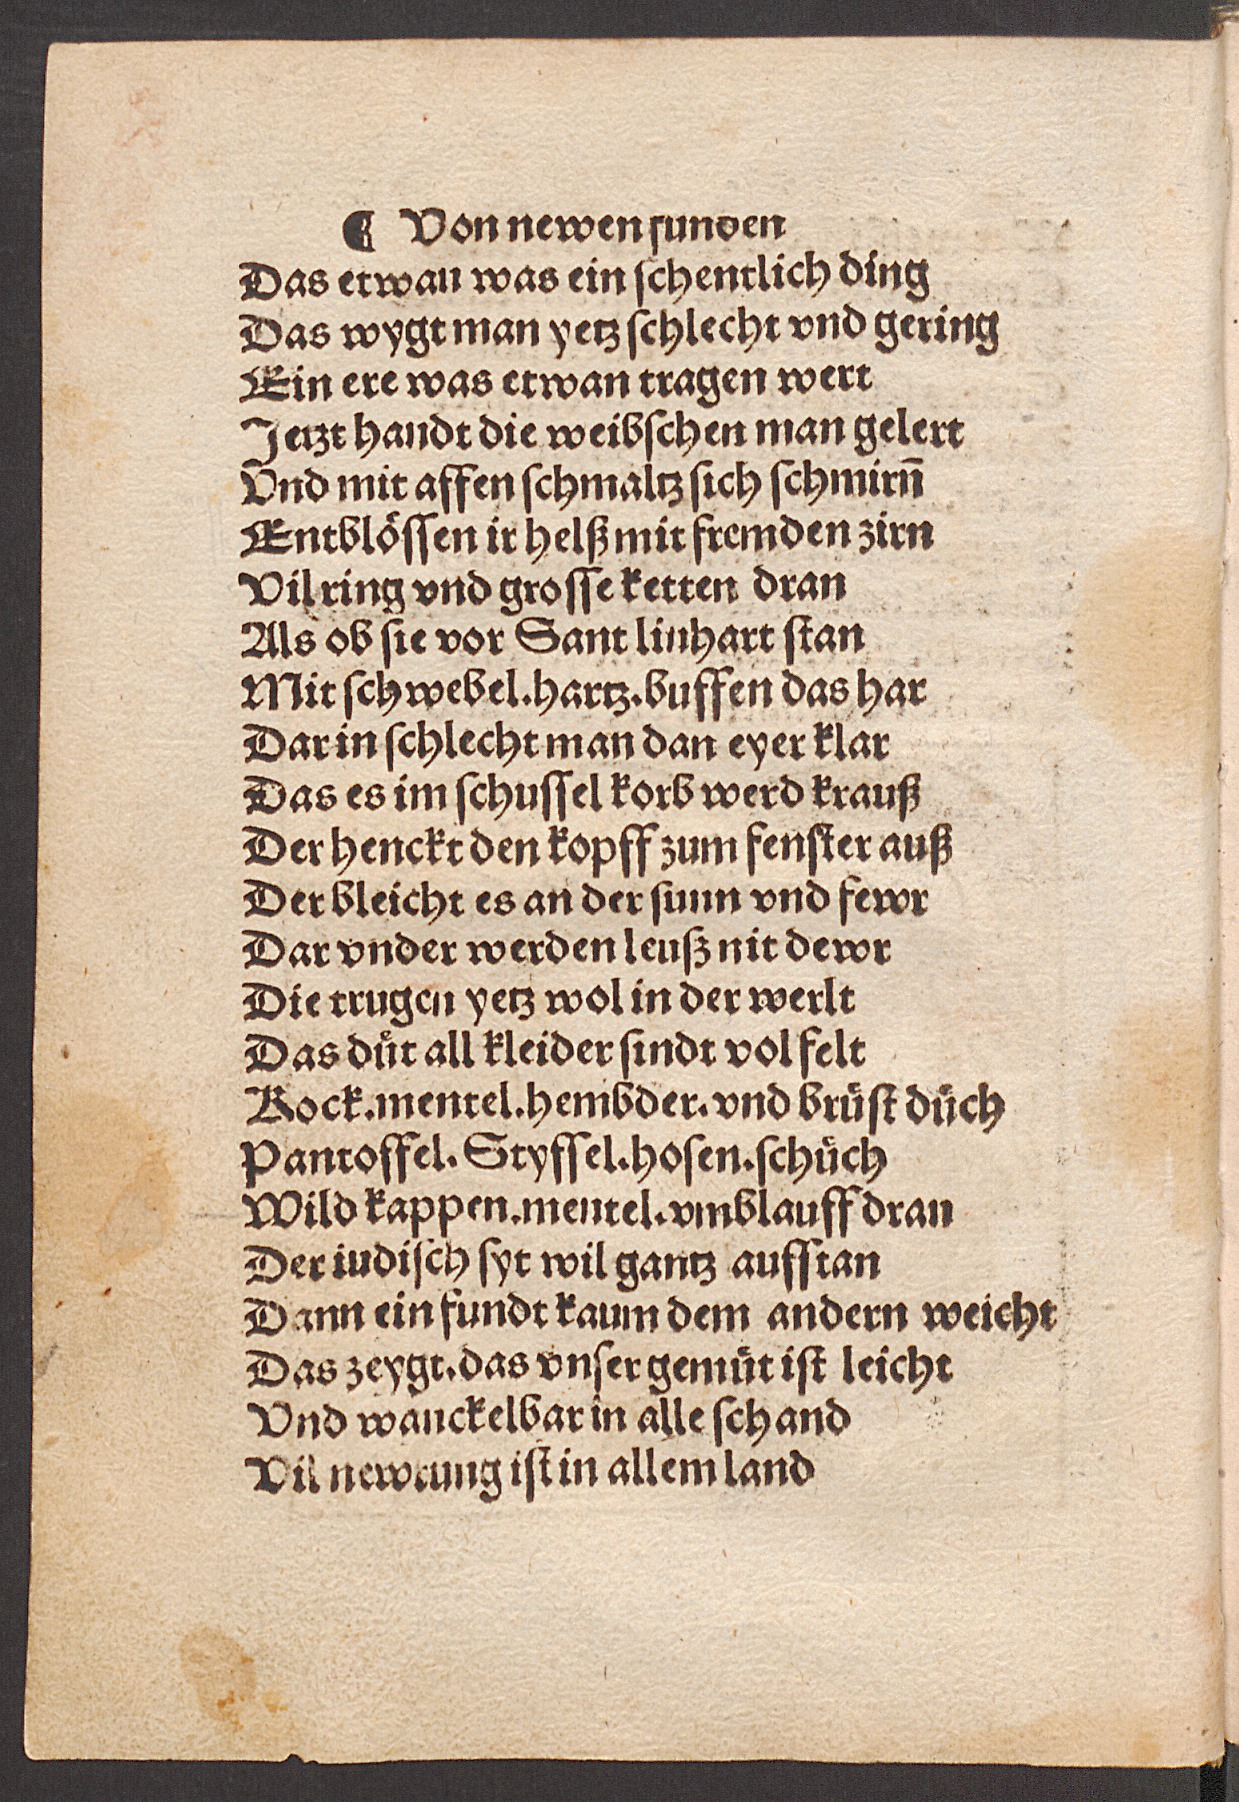 ¶ Von newen funden
Das etwan was ein schentlich ding
Das wygt man yetz schlecht vnd gering
Ein ere was etwan tragen wert
Jetzt handt die weibschen man gelert
Vnd mit affen schmaltz sich schmirn̄
Entblössen ir helß mit fremden zirn
Vil ring vnd grosse ketten dran
Als ob sie vor Sant linhart stan
Mit schwebel.hartz.buffen das har
Dar in schlecht man dan eyer klar
Das es im schussel korb werd krauß
Der henckt den kopff zum fenster auß
Der bleicht es an der sunn vnd fewr
Dar vnder werden leuß nit dewr
Die trugen yetz wol in der werlt
Das duͤt all kleider sindt vol felt
Rock.mentel.hembder.vnd bruͤst duͤch
Pantoffel.Styffel.hosen.schuͤch
Wild kappen.mentel.vmblauff dran
Der iudisch syt wil gantz aufstan
Dann ein fundt kaum dem andern weicht
Das zeygt.das vnser gemuͤt ist leicht
Vnd wanckelbar in alle schand
Vil newrung ist in allem land